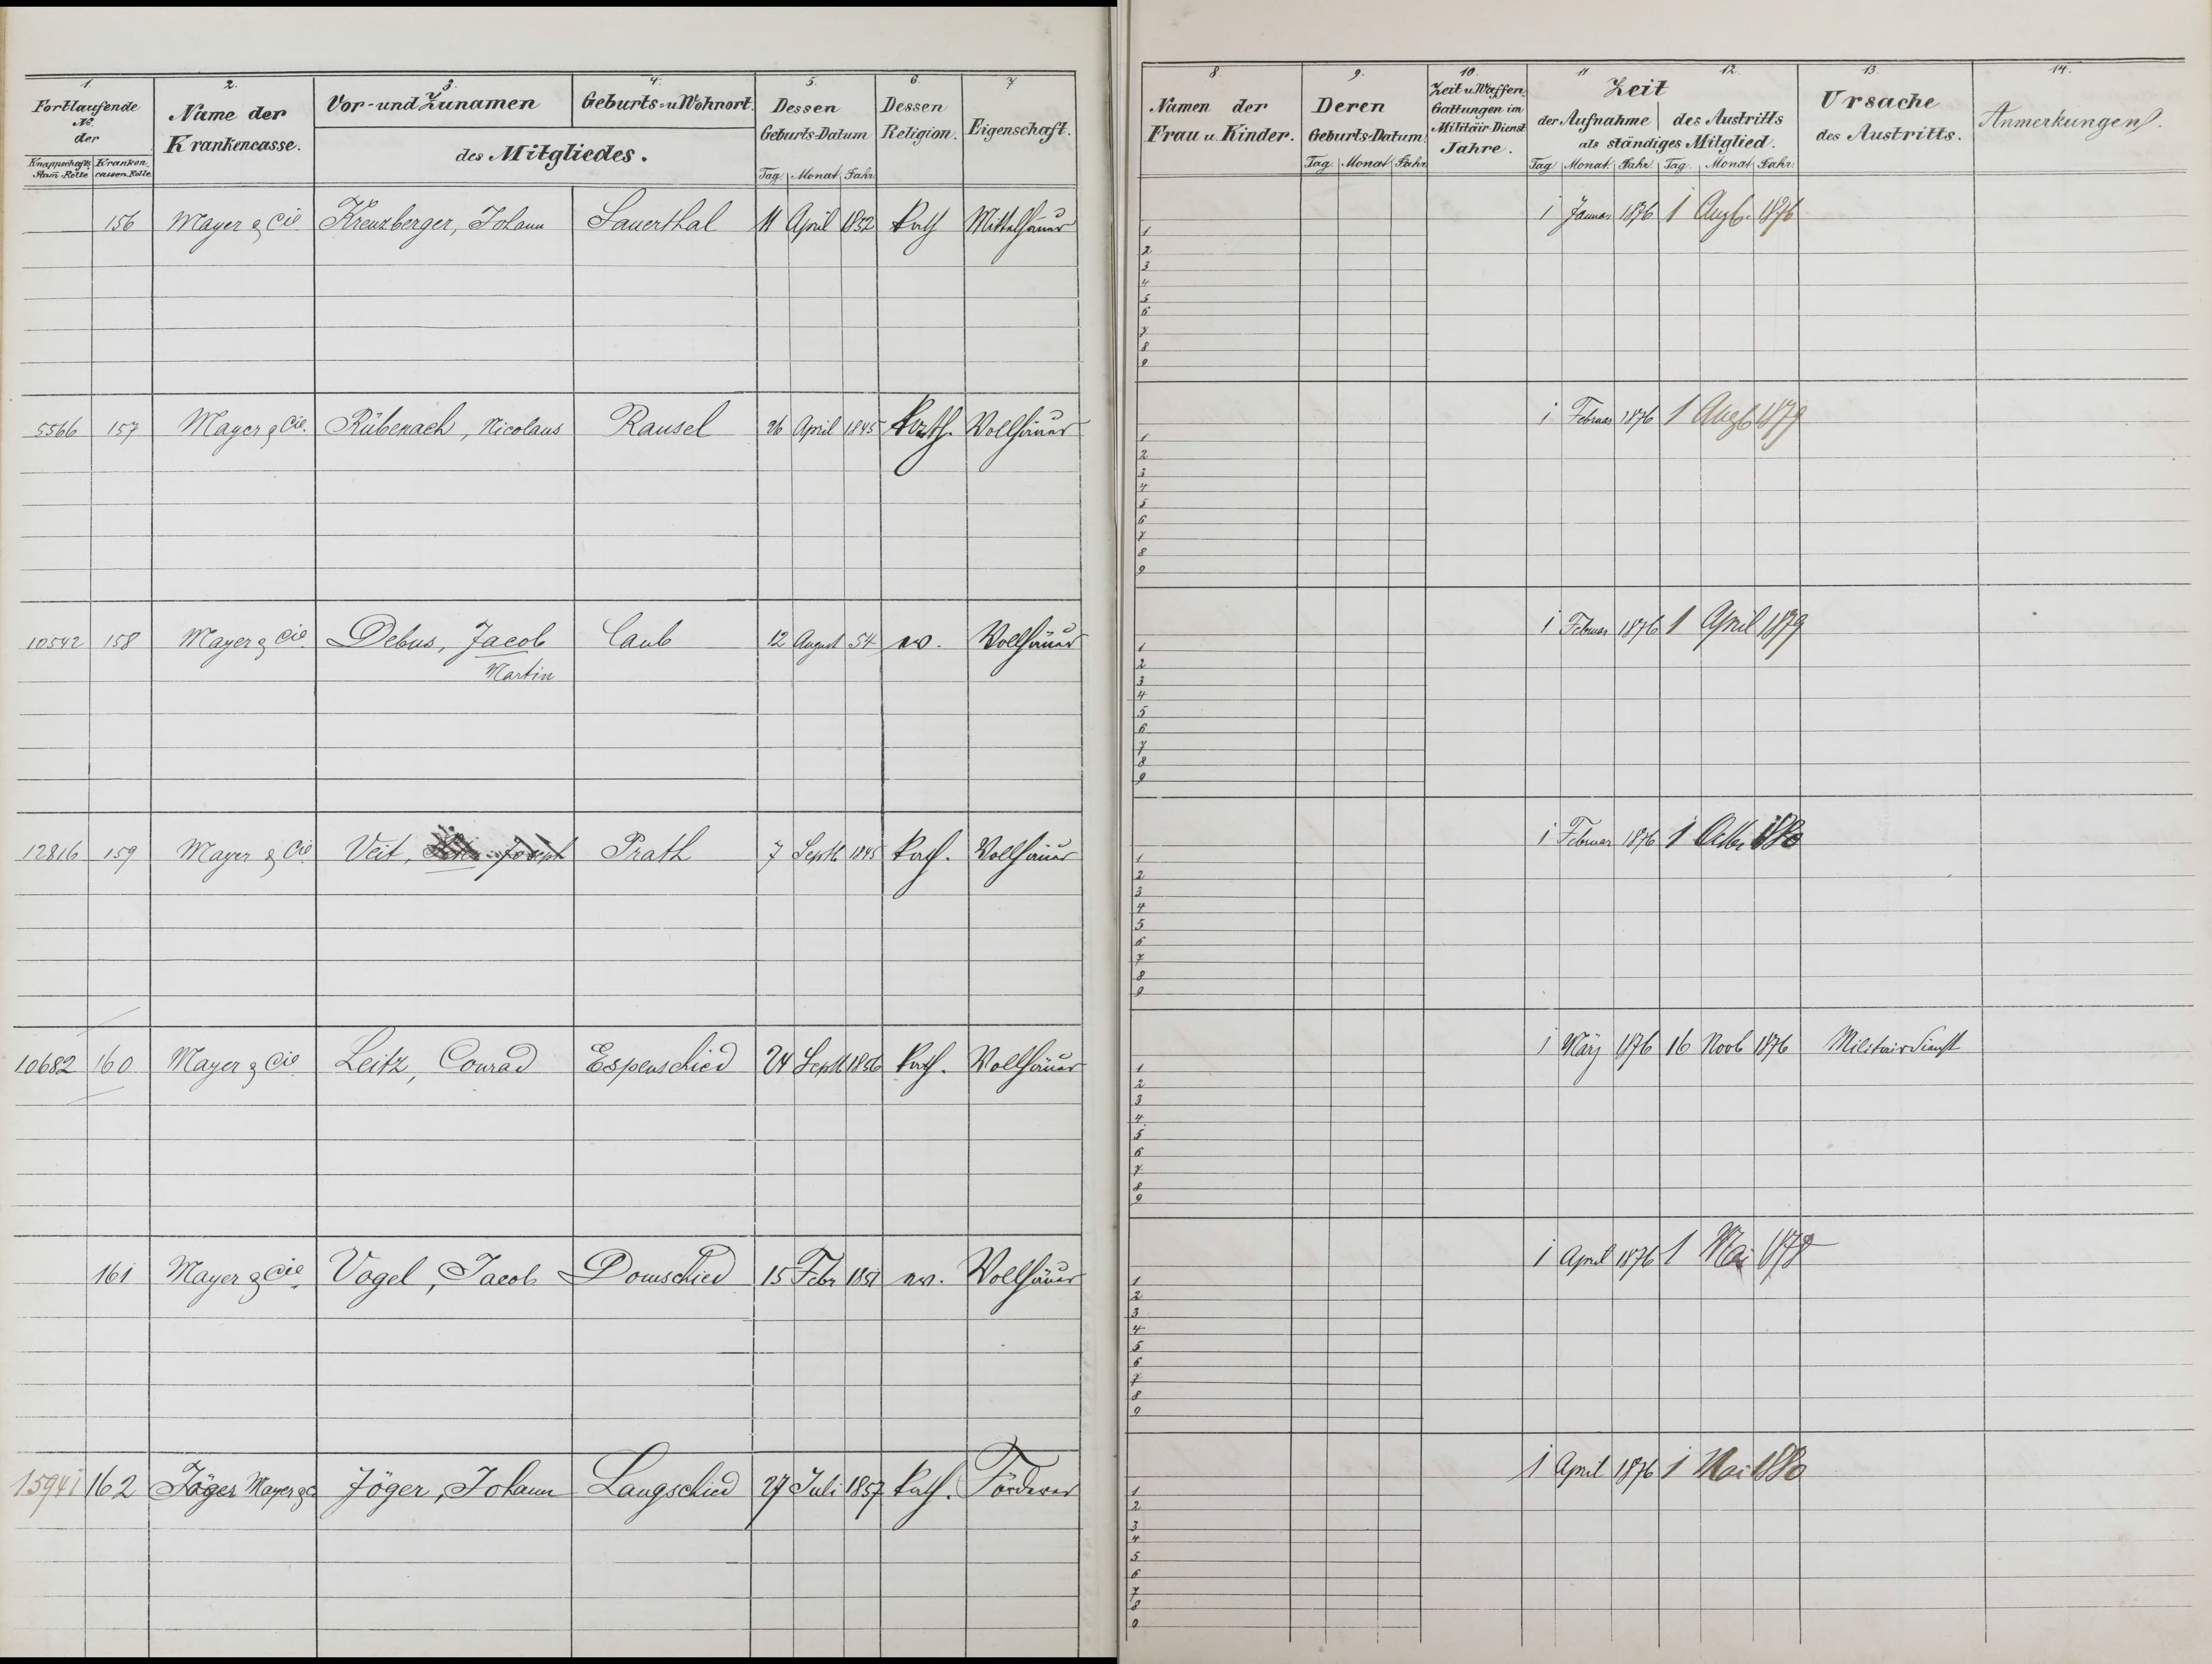 1. 2. 3. 4. 5. 6. 7
Fortlaufende No. der Name der Krankencasse. Vor- und Zunamen Geburts- u Wohnort. des Mitgliedes. Dessen Geburts-Datum Dessen Religion. Eigenschaft.
Knappschafts Stam Rolle Kranken cassen Rolle Tag. Monat Jahr
156 Mayer & Cie Kreuzberger, Johann Sauerthal 11 April 1852 kath Mittelhäuer
5566 157 Mayer & Cie. Rübenach, Nicolaus Ransel 26 April 1845 kath. Vollhäuer
10542 158 Mayer & Cie. Debus, Jacob Caub 12 August 54 ev. Vollhäuer
Martin
12816 159 Mayer & Cie. Veit, Joseph Prath 7 Septb 1845 kath. Vollhäuer
10682 160 Mayer & Cie Leitz, Conrad Espenschied 24 Septb 1856 kath. Vollhäuer
161 Mayer & Cie. Vogel, Jacob Dornschied 15 Febr 1851 ev. Vollhäuer
15941 162 Jäger Mayer & C Jäger, Johann Langschied 27 Juli 1857 kath. Förderer
8. 9. 10. 11 12. 13. 14.
Namen der Frau u. Kinder. Deren Geburts-Datum. Zeit u. Waffen Gattungen im Militair Dienst Jahre. Zeit der Aufnahme des Austritts als ständiges Mitglied. Ursache des Austritts. Anmerkungen.
Tag. Monat Jahr Tag Monat. Jahr Tag. Monat Jahr.
1 Januar 1876 1 Augb. 1876
1
2
3
4
5
6
7
8
9
1 Februar 1876 1 Augb 1879
1
2
3
4
5
6
7
8
9
1 Februar 1876 1 April 1879
1
2
3
4
5
6
7
8
9
1 Februar 1876 1 Octbr 1880
1
2
3
4
5
6
7
8
9
1 März 1876 16 Novb 1876 Militairdienst
1
2
3
4
5
6
7
8
9
1 April 1876 1 Mai 1878
1
2
3
4
5
6
7
8
9
1 April 1876 1 Mai 1880
1
2
3
4
5
6
7
8
9